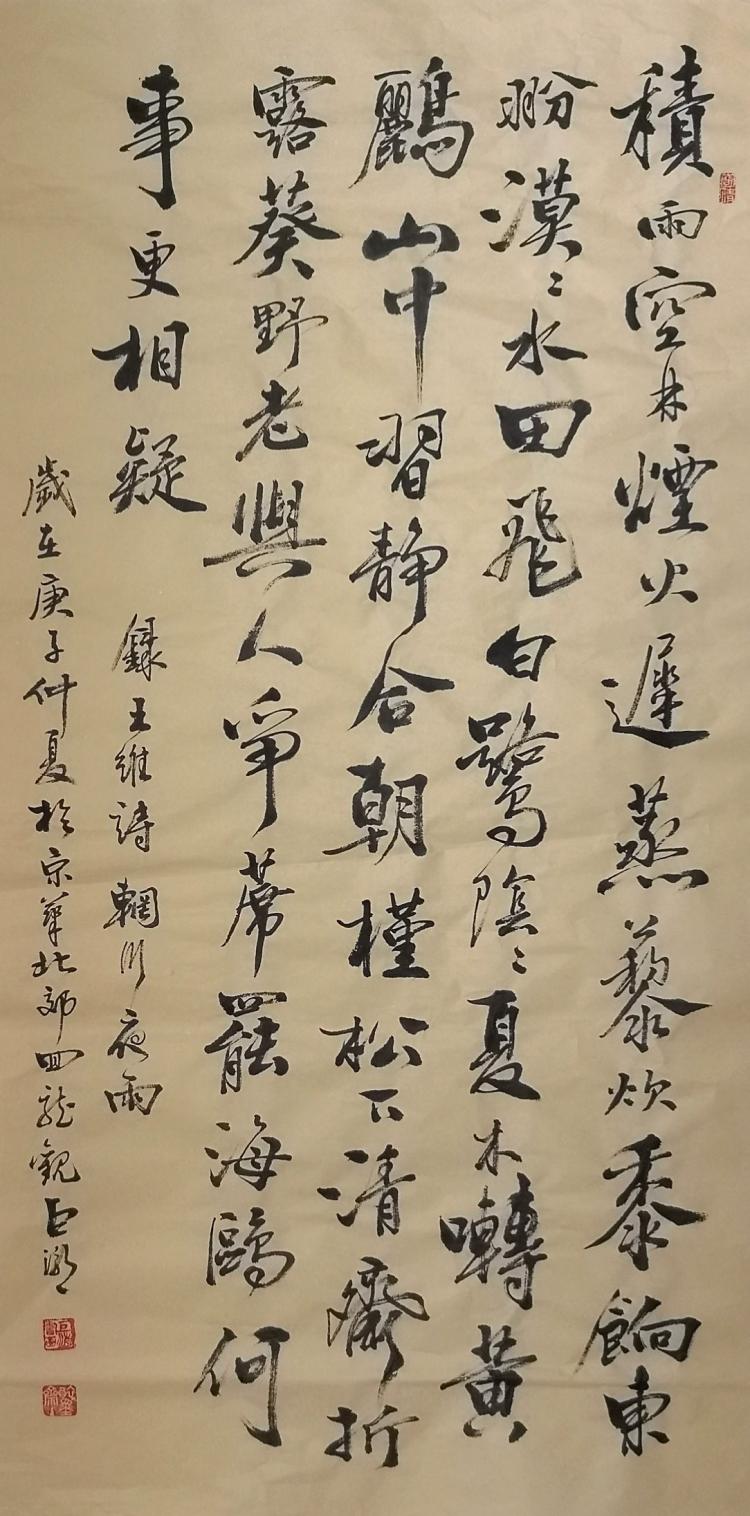 積雨空林煙火遲蒸藜炊黍餉東
䎐漠〻水田飛白鷺陰〻夏木囀黃
鸝山中習靜合朝槿松下清齋折
露葵野老與人爭蓆罷海鷗何
事更相疑
錄王維詩輞川夜雨
歲在庚子仲夏於京華北郊回龍觀